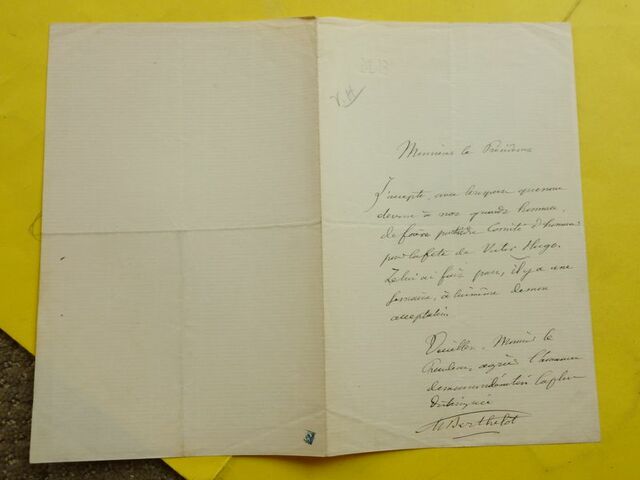 V.H
Monsieur le Président
J'accepte, avec le respect que nous
devons à nos grands hommes,
de faire partie du Comité d'honneur
pour la fête de Victor Hugo.
Je lui ai fait part, il y a une
semaine, à lui même de mon
acceptation.
Veuillez, Monsieur le
Président, agréer l'assurance
de ma considération la plus
distinguée
M Berthelot